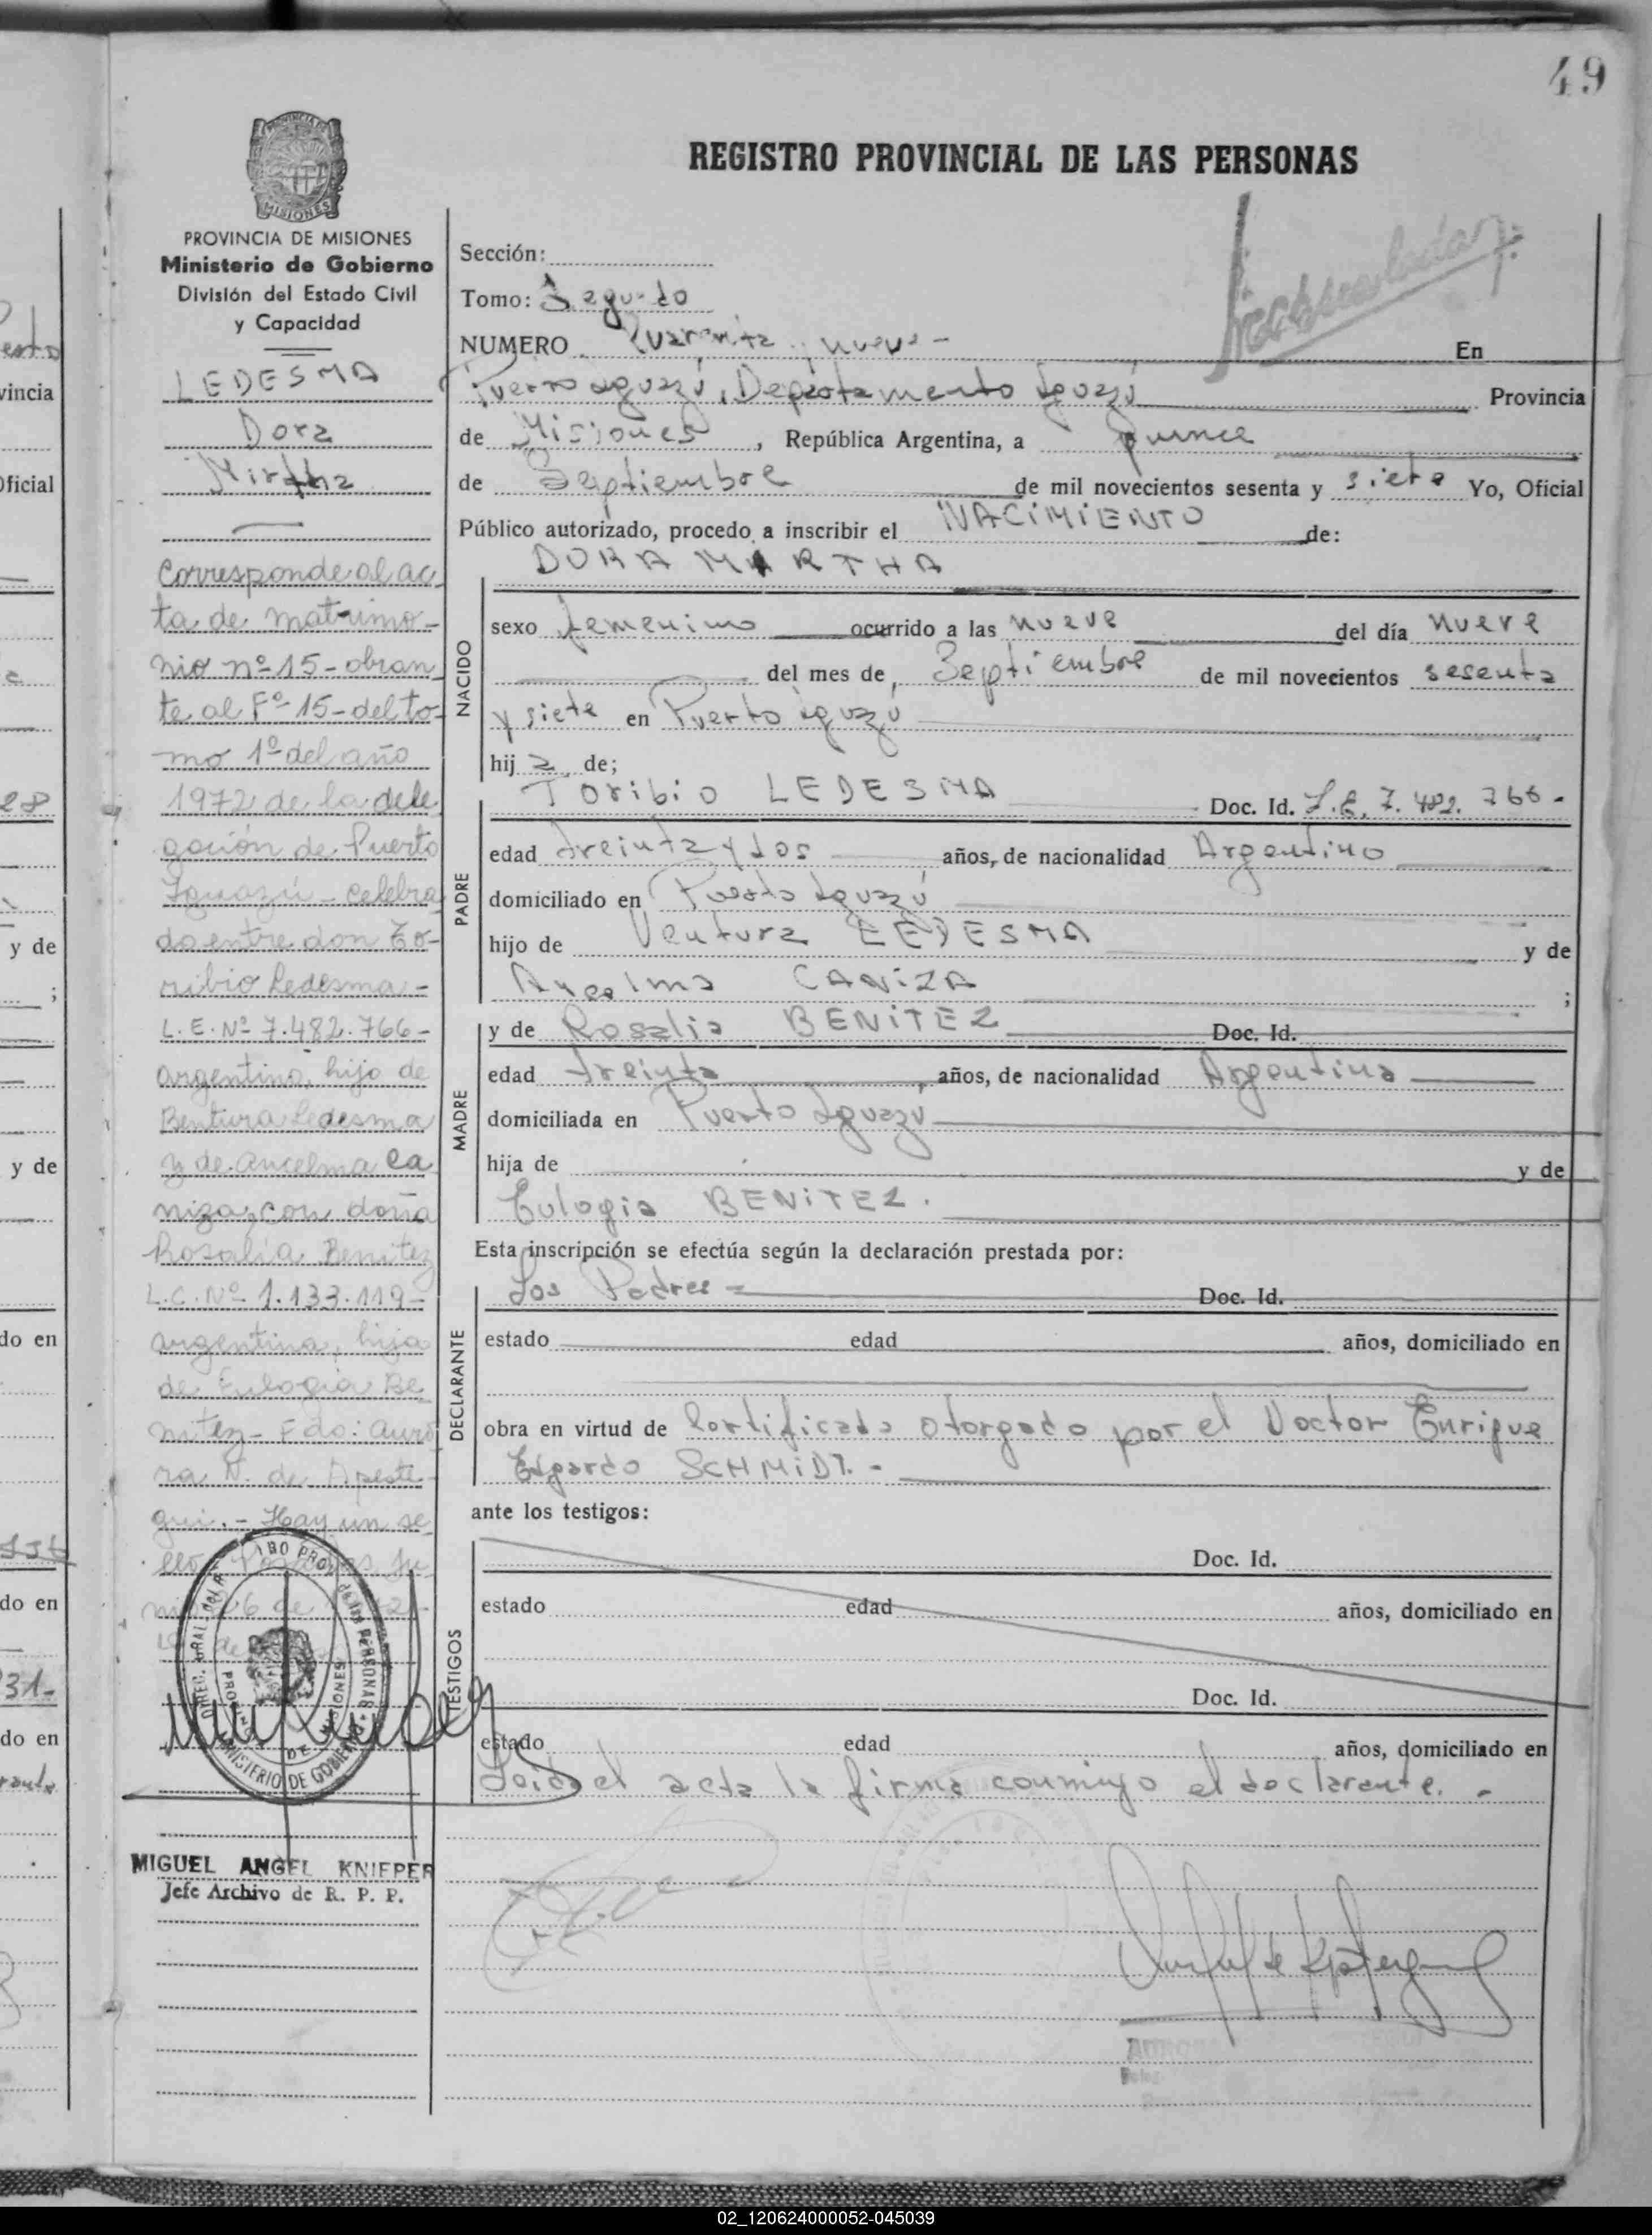 49
REGISTRO PROVINCIAL DE LAS PERSONAS
PROVINCIA DE MISIONES
Ministerio de Gobierno
División del Estado Civil
y Capacidad
LEDESMA
Dora
Mirtha
Corresponde al ac-
ta de matrimo-
nio nº 15 - obran
te al Fº 15 - del to-
mo 1º del año
1972 de la dele
gación de Puerto
Iguazú - celebra
do entre don To-
ribio Ledesma -
L.E. Nº 7.482.766 -
argentino, hijo de
Bentura Ledesma
y de Ancelma Ca
niza, con doña
Rosalía Benitez
L.C. Nº 1.133.119 -
argentina, hija
de Eulogia Be
nitez - Fdo: Auro
ra N. de Apeste-
gui. - Hay un se
llo. Posadas, Ju
MINISTERIO DE GOBIERNO
PROVINCIA DE MISIONES
MIGUEL ANGEL KNIEPER
Jefe Archivo de R. P. P.
Sección:
Tomo: Segundo
NUMERO Cuarenta y nueve - En
Puerto Iguazú, Departamento Iguazú Provincia
de Misiones, República Argentina, a quince
de Septiembre de mil novecientos sesenta y siete Yo, Oficial
Público autorizado, procedo a inscribir el NACIMIENTO de:
DORA MIRTHA
NACIDO
sexo femenino ocurrido a las nueve del día nueve
del mes de Septiembre de mil novecientos sesenta
y siete en Puerto Iguazú
hija de;
PADRE
Toribio LEDESMA Doc. Id. L.E. 7.482.766 -
edad treinta y dos años, de nacionalidad Argentino
domiciliado en Puerto Iguazú
hijo de Ventura LEDESMA y de
Ancelma CANIZA ;
MADRE
y de Rosalia BENITEZ Doc. Id.
edad treinta años, de nacionalidad Argentina
domiciliada en Puerto Iguazú
hija de y de
Eulogia BENITEZ.
Esta inscripción se efectúa según la declaración prestada por:
DECLARANTE
Los Padres - Doc. Id.
estado edad años, domiciliado en
obra en virtud de Certificado otorgado por el Doctor Enrique
Edgardo SCHMIDT. -
ante los testigos:
TESTIGOS
Doc. Id.
estado edad años, domiciliado en
Doc. Id.
estado edad años, domiciliado en
Leida el acta la firma conmigo el declarante. -
02_120624000052-045039